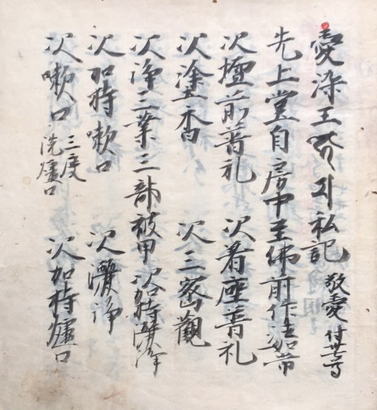 愛染王 私記 敬愛
先上堂自房中至佛前作法如常
次壇前普礼 次着座普礼
次塗香 次三密觀
次浄三業三部被甲 次加持
次加持嗽口 次灑浄
次嗽口 三度 次加持爐口